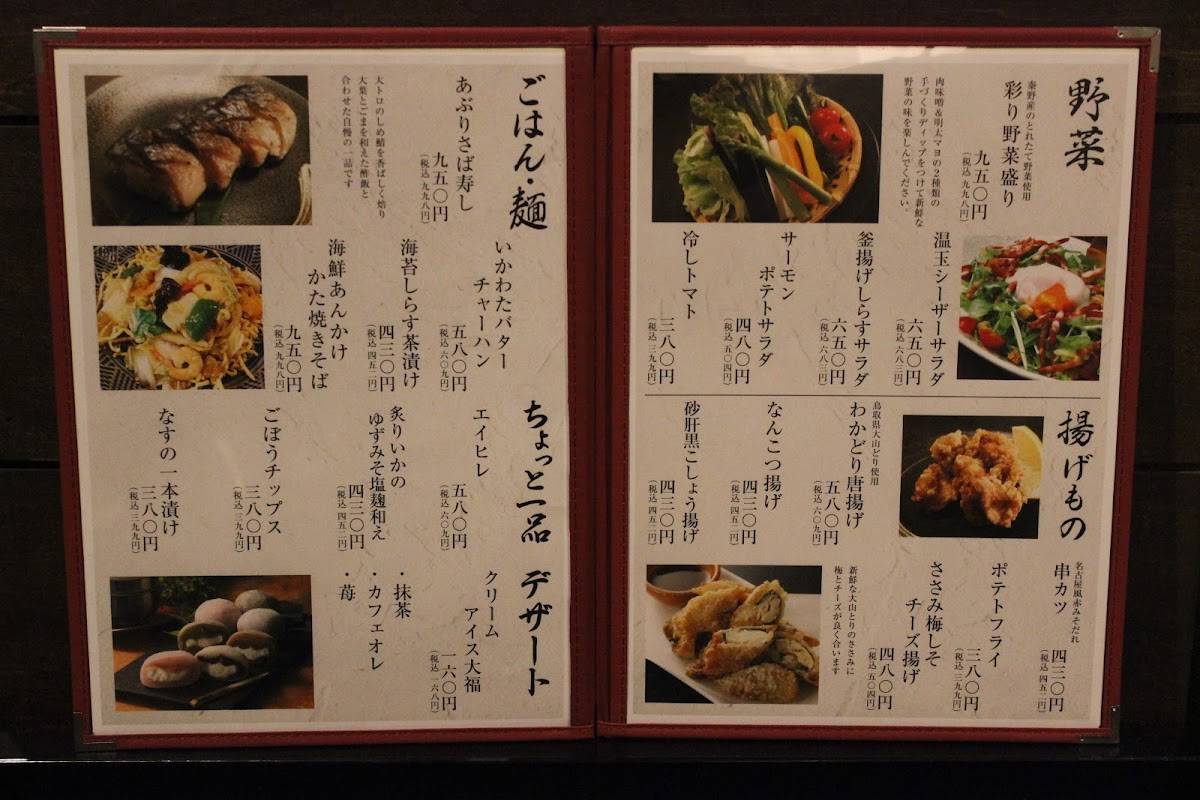 野菜
秦野産のとれたて野菜使用
彩り野菜盛り
九五〇円
(税込 九九八円)
肉味噌&明太マヨの2種類の
手づくりディップをつけて新鮮な
野菜の味を楽しんでください。
温玉シーザーサラダ
六五〇円
(税込 六八三円)
釜揚げしらすサラダ
六五〇円
(税込 六八三円)
サーモン
ポテトサラダ
四八〇円
(税込 五〇四円)
冷しトマト
三八〇円
(税込 三九九円)
揚げもの
鳥取県大山どり使用
わかどり唐揚げ
五八〇円
(税込 六〇九円)
なんこつ揚げ
四三〇円
(税込 四五二円)
砂肝黒こしょう揚げ
四三〇円
(税込 四五二円)
名古屋風赤みそだれ
串カツ
四三〇円
(税込 四五二円)
ポテトフライ
三八〇円
(税込 三九九円)
ささみ梅しそ
チーズ揚げ
四八〇円
(税込 五〇四円)
新鮮な大山とりのささみに
梅とチーズが良く合います
ごはん・麺
あぶりさば寿し
九五〇円
(税込 九九八円)
大トロのしめ鯖を香ばしく焙り
大葉とごまを和えた酢飯と
合わせた自慢の一品です
いかわたバター
チャーハン
五八〇円
(税込 六〇九円)
海苔しらす茶漬け
四三〇円
(税込 四五二円)
海鮮あんかけ
かた焼きそば
九五〇円
(税込 九九八円)
ちょっと一品
エイヒレ
五八〇円
(税込 六〇九円)
炙りいかの
ゆずみそ塩麹和え
四三〇円
(税込 四五二円)
ごぼうチップス
三八〇円
(税込 三九九円)
なすの一本漬け
三八〇円
(税込 三九九円)
デザート
クリーム
アイス大福
一六〇円
(税込 一六八円)
・抹茶
・カフェオレ
・苺